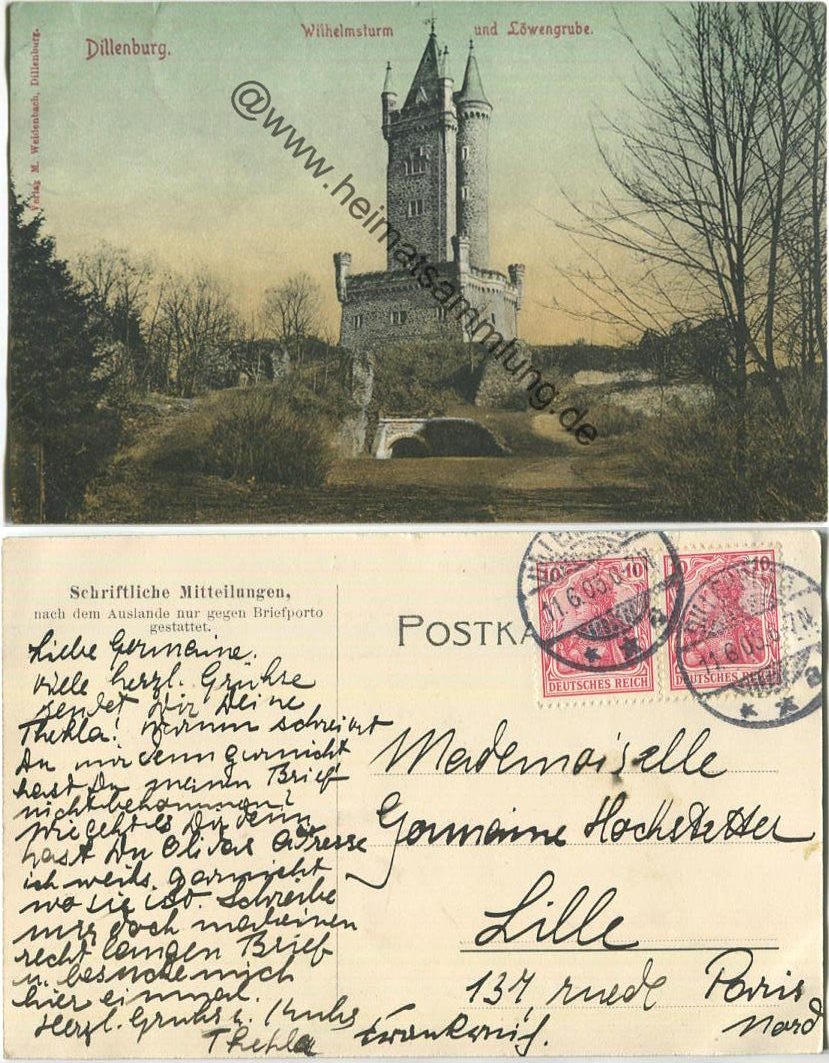 Dillenburg.
Wilhelmsturm und Löwengrube.
Verlag M. Weidenbach, Dillenburg.
@www.heimatsammlung.de
Schriftliche Mitteilungen,
nach dem Auslande nur gegen Briefporto
gestattet.
POSTKA
10 10
DEUTSCHES REICH
10
DEUTSCHES REICH
11.6.05.6-7N
11.6.05.6-7N
Liebe Germaine.
Viele herzl. Grühse
sendet Dir Deine
Thekla! Warum schreibst
Du mir denn garnicht
hast Du meinen Brief
nicht bekommen?
Wie geht es Dir denn
hast Du Olidas Adresse
ich weihs garnicht
wo sie ist. Schreibe
mir doch mal einen
recht langen Brief
u. besuche mich
hier einmal.
Herzl. Gruhs u. Kuhs
Thekla
Mademoiselle
Germaine Hochstetter
Lille
137, rue de Paris
Nord
Frankreich.